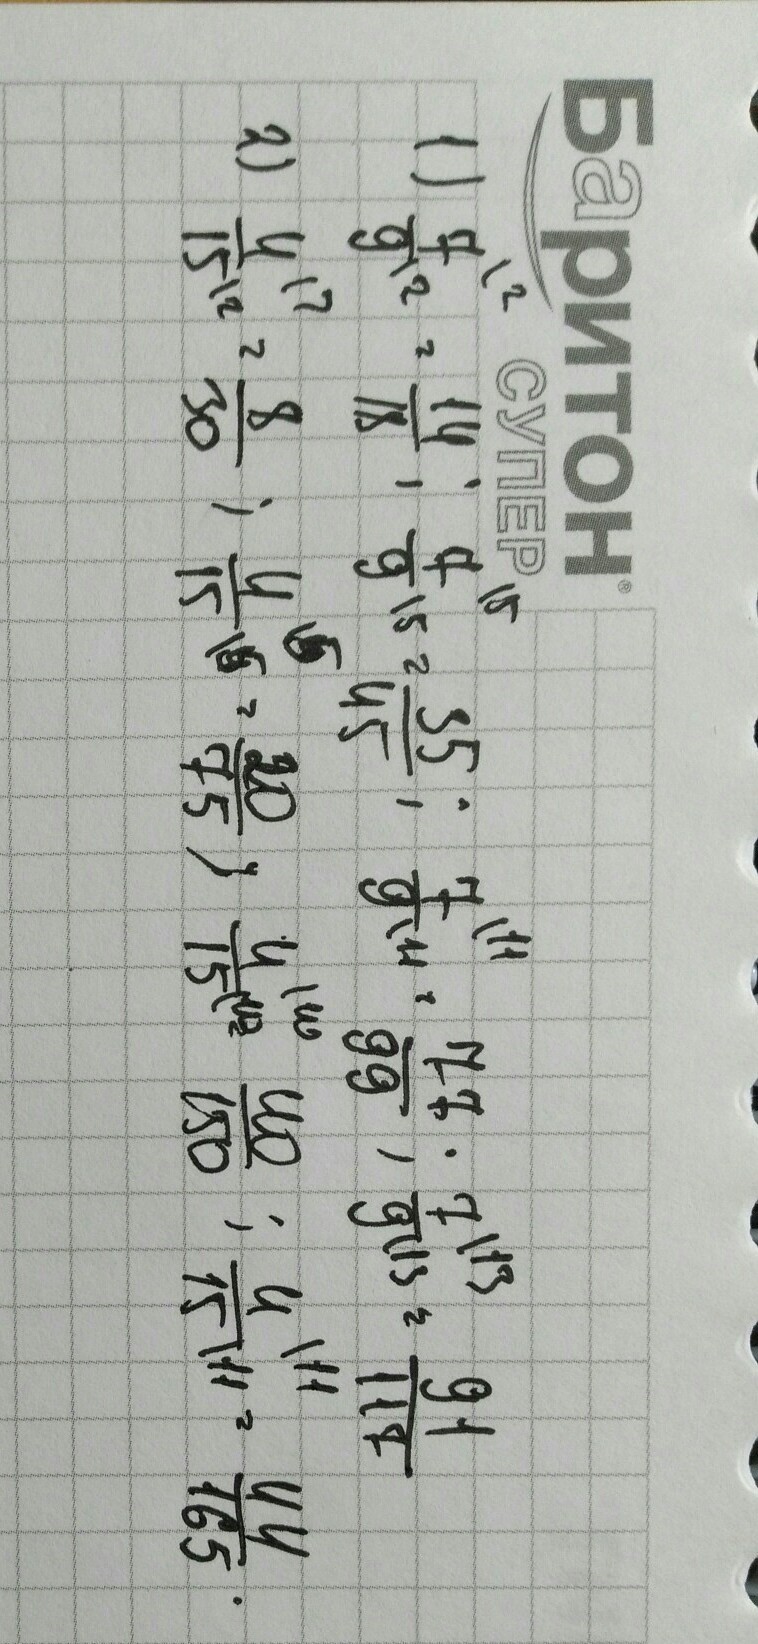 Баритон®
СУПЕР
1) 7\2/9\2 = 14/18 ; 7\5/9\5 = 35/45 ; 7\11/9\11 = 77/99 ; 7\13/9\13 = 91/117
2) 4\2/15\2 = 8/30 ; 4\5/15\5 = 20/75 ; 4\10/15 40/150 ; 4\11/15\11 = 44/165 .